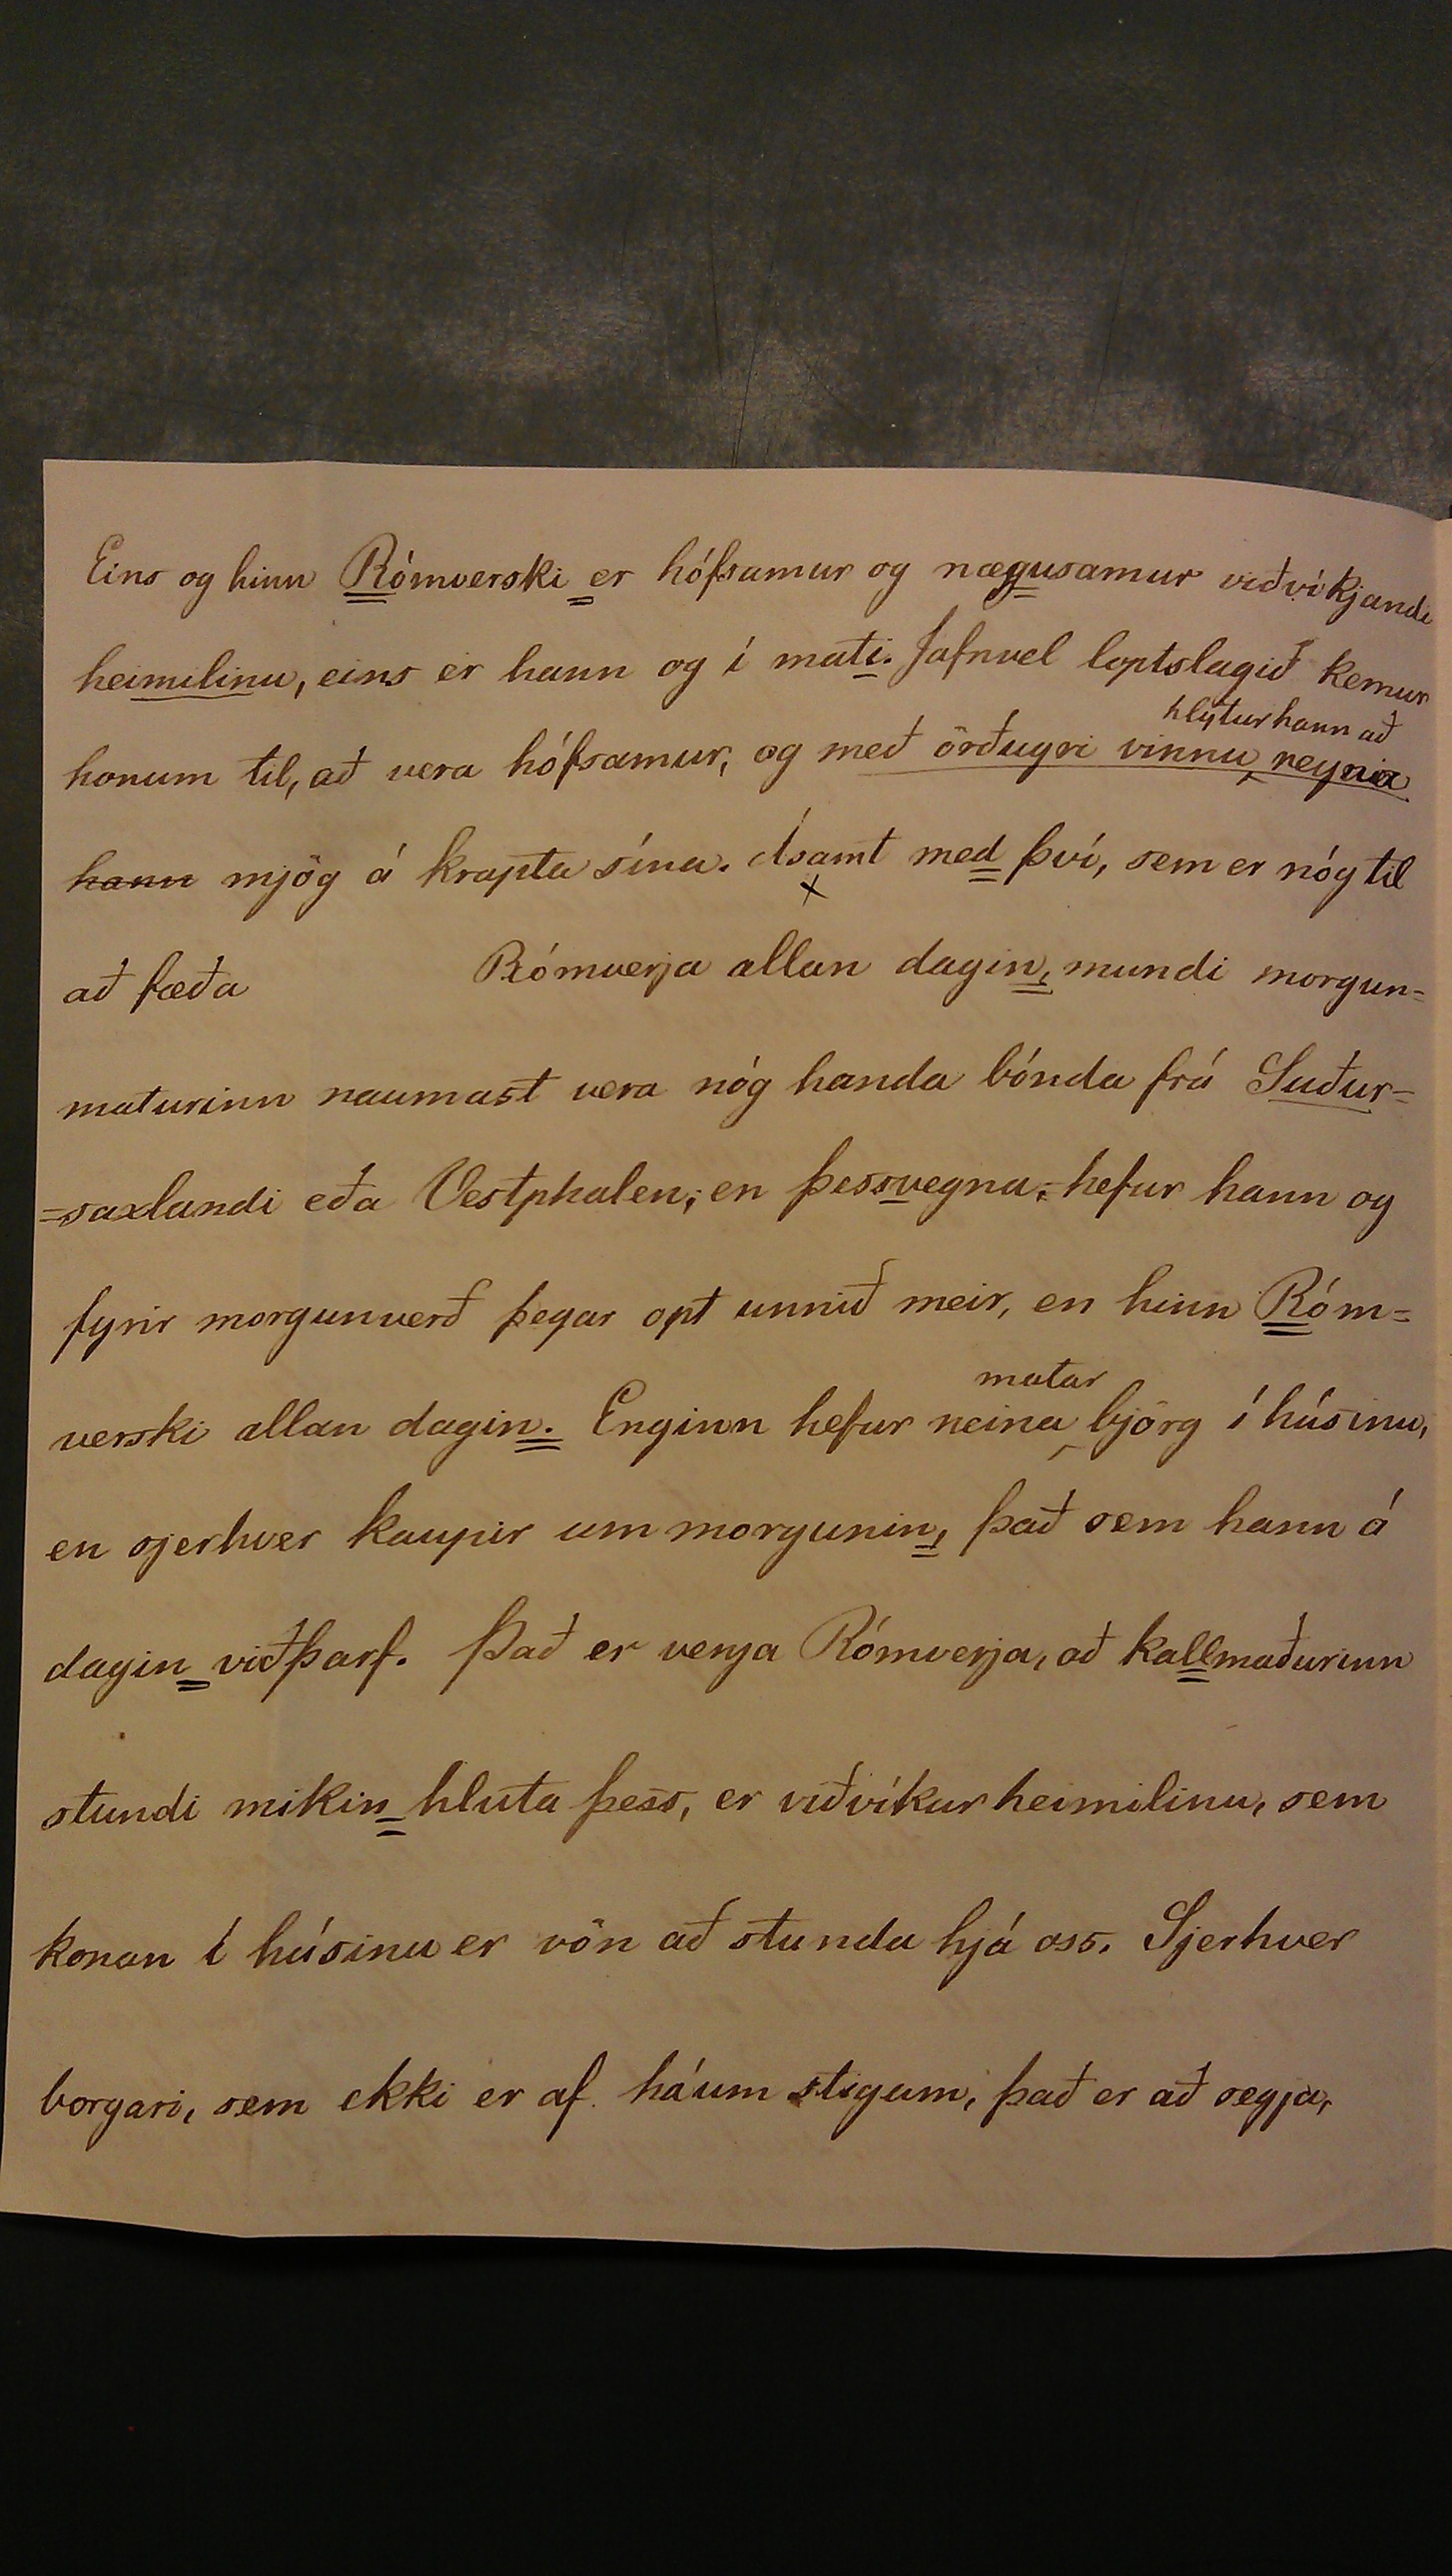 Eins og hinn Rómverski er hófsamur og nægusamur viðvíkjandi
heimilinu, eins er hann og í mati. Jafnvel loptslagið kemur
hlýtur hann að
honum til, að vera hófsamur, og með örðugri vinnu reyna
hann mjög á krapta sína. Ásamt med því, sem er nóg til
að fæða Rómverja allan dagin, mundi morgun=
maturinn naumast vera nóg handa bónda frá Suður=
=saxlandi eða Vestphalen; en þessvegna hefur hann og
fyrir morgunverð þegar opt unnið meir, en hinn Róm=
matar
verski allan dagin. Enginn hefur neina björg í húsinu,
en sjerhver kaupir um morgunin, það sem hann á
dagin viðþarf. Það er venja Rómverja, að kallmaðurinn
stundi mikin hluta þess, er viðvíkur heimilinu, sem
konan í húsinu er vön að stunda hjá oss. Sjerhver
borgari, sem ekki er af háum stigum, það er að segja,